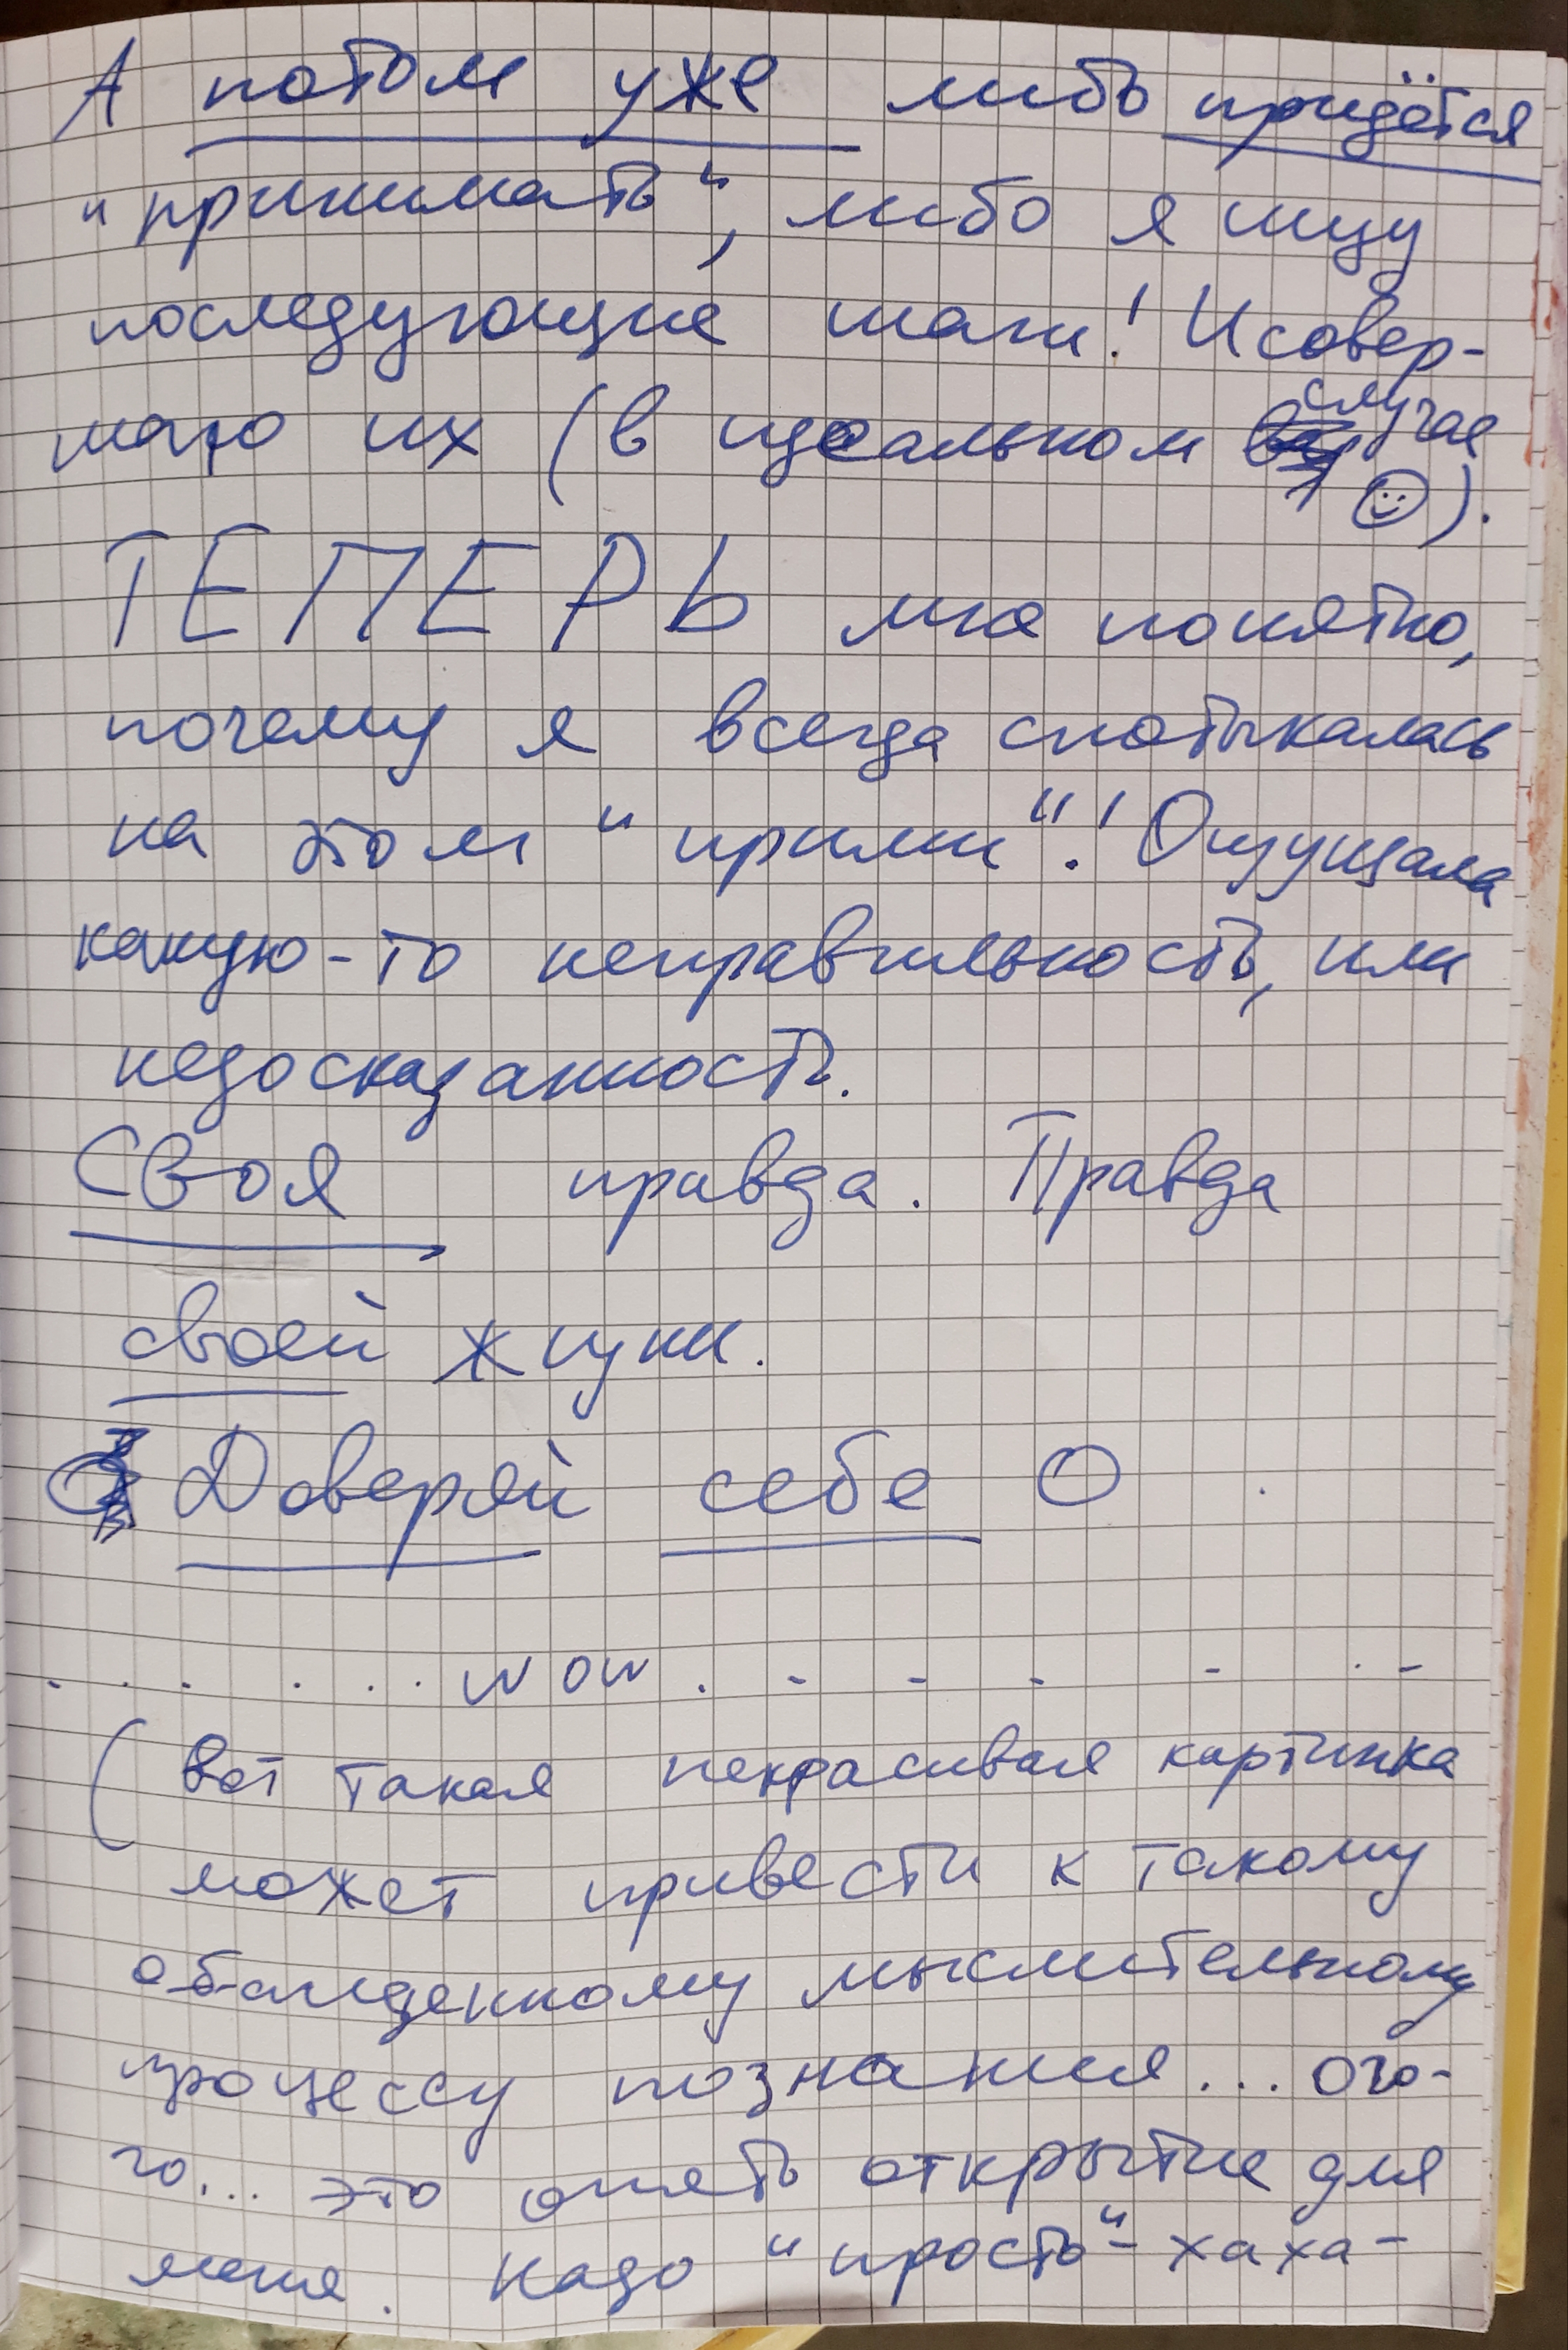 А потом уже либо придётся
"принимать", либо я ищу
последующие шаги! И совер-
шаю их (в идеальном случае
☺).
ТЕПЕРЬ мне понятно,
почему я всегда спотыкалась
на этом "прими"! Ощущала
какую-то неправильность, или
недосказанность.
Своя правда. Правда
своей жизни.
Доверяй себе О
. . . . . . . wow . - - - - . -
(Вот такая некрасивая картинка
может привести к такому
обалденному мыслительному
процессу познания... ого-
го... это опять открытие для
меня. Надо "просто" - хаха-